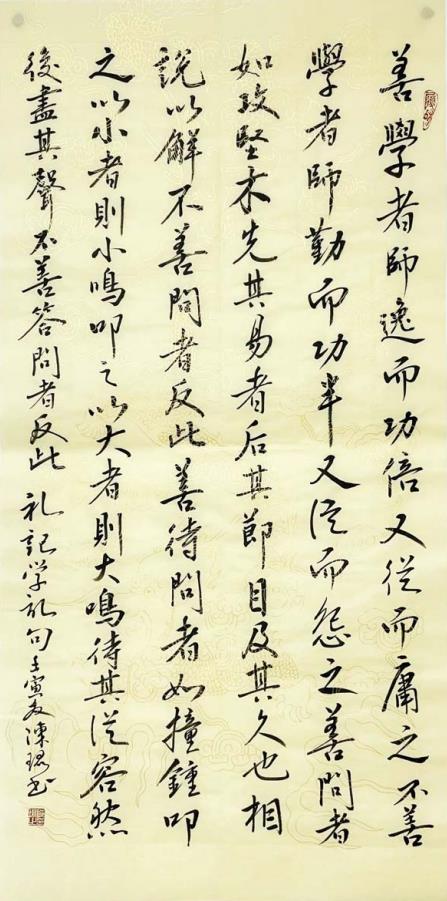 善學者師逸而功倍又從而庸之不善
學者師勤而功半又從而怨之善問者
如攻堅木先其易者后其節目及其久也相
說以解不善問者反此善待問者如撞鐘叩
之以小者則小鳴叩之以大者則大鳴待其從容然
後盡其聲不善答問者反此 礼記学記句壬寅夏陳琚书